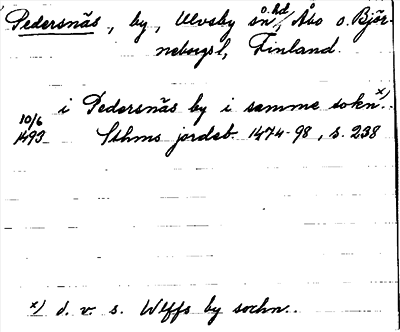 Pedersnäs, by, Ulvsby sn o. hd, Åbo o. Björ-
neborgs l, Finland.
i Pedersnäs by i samme sokn x)..
10/6
1493 Sthms jordeb. 1474-98, s. 238
x) d. v. s. Wlffs by sochn..